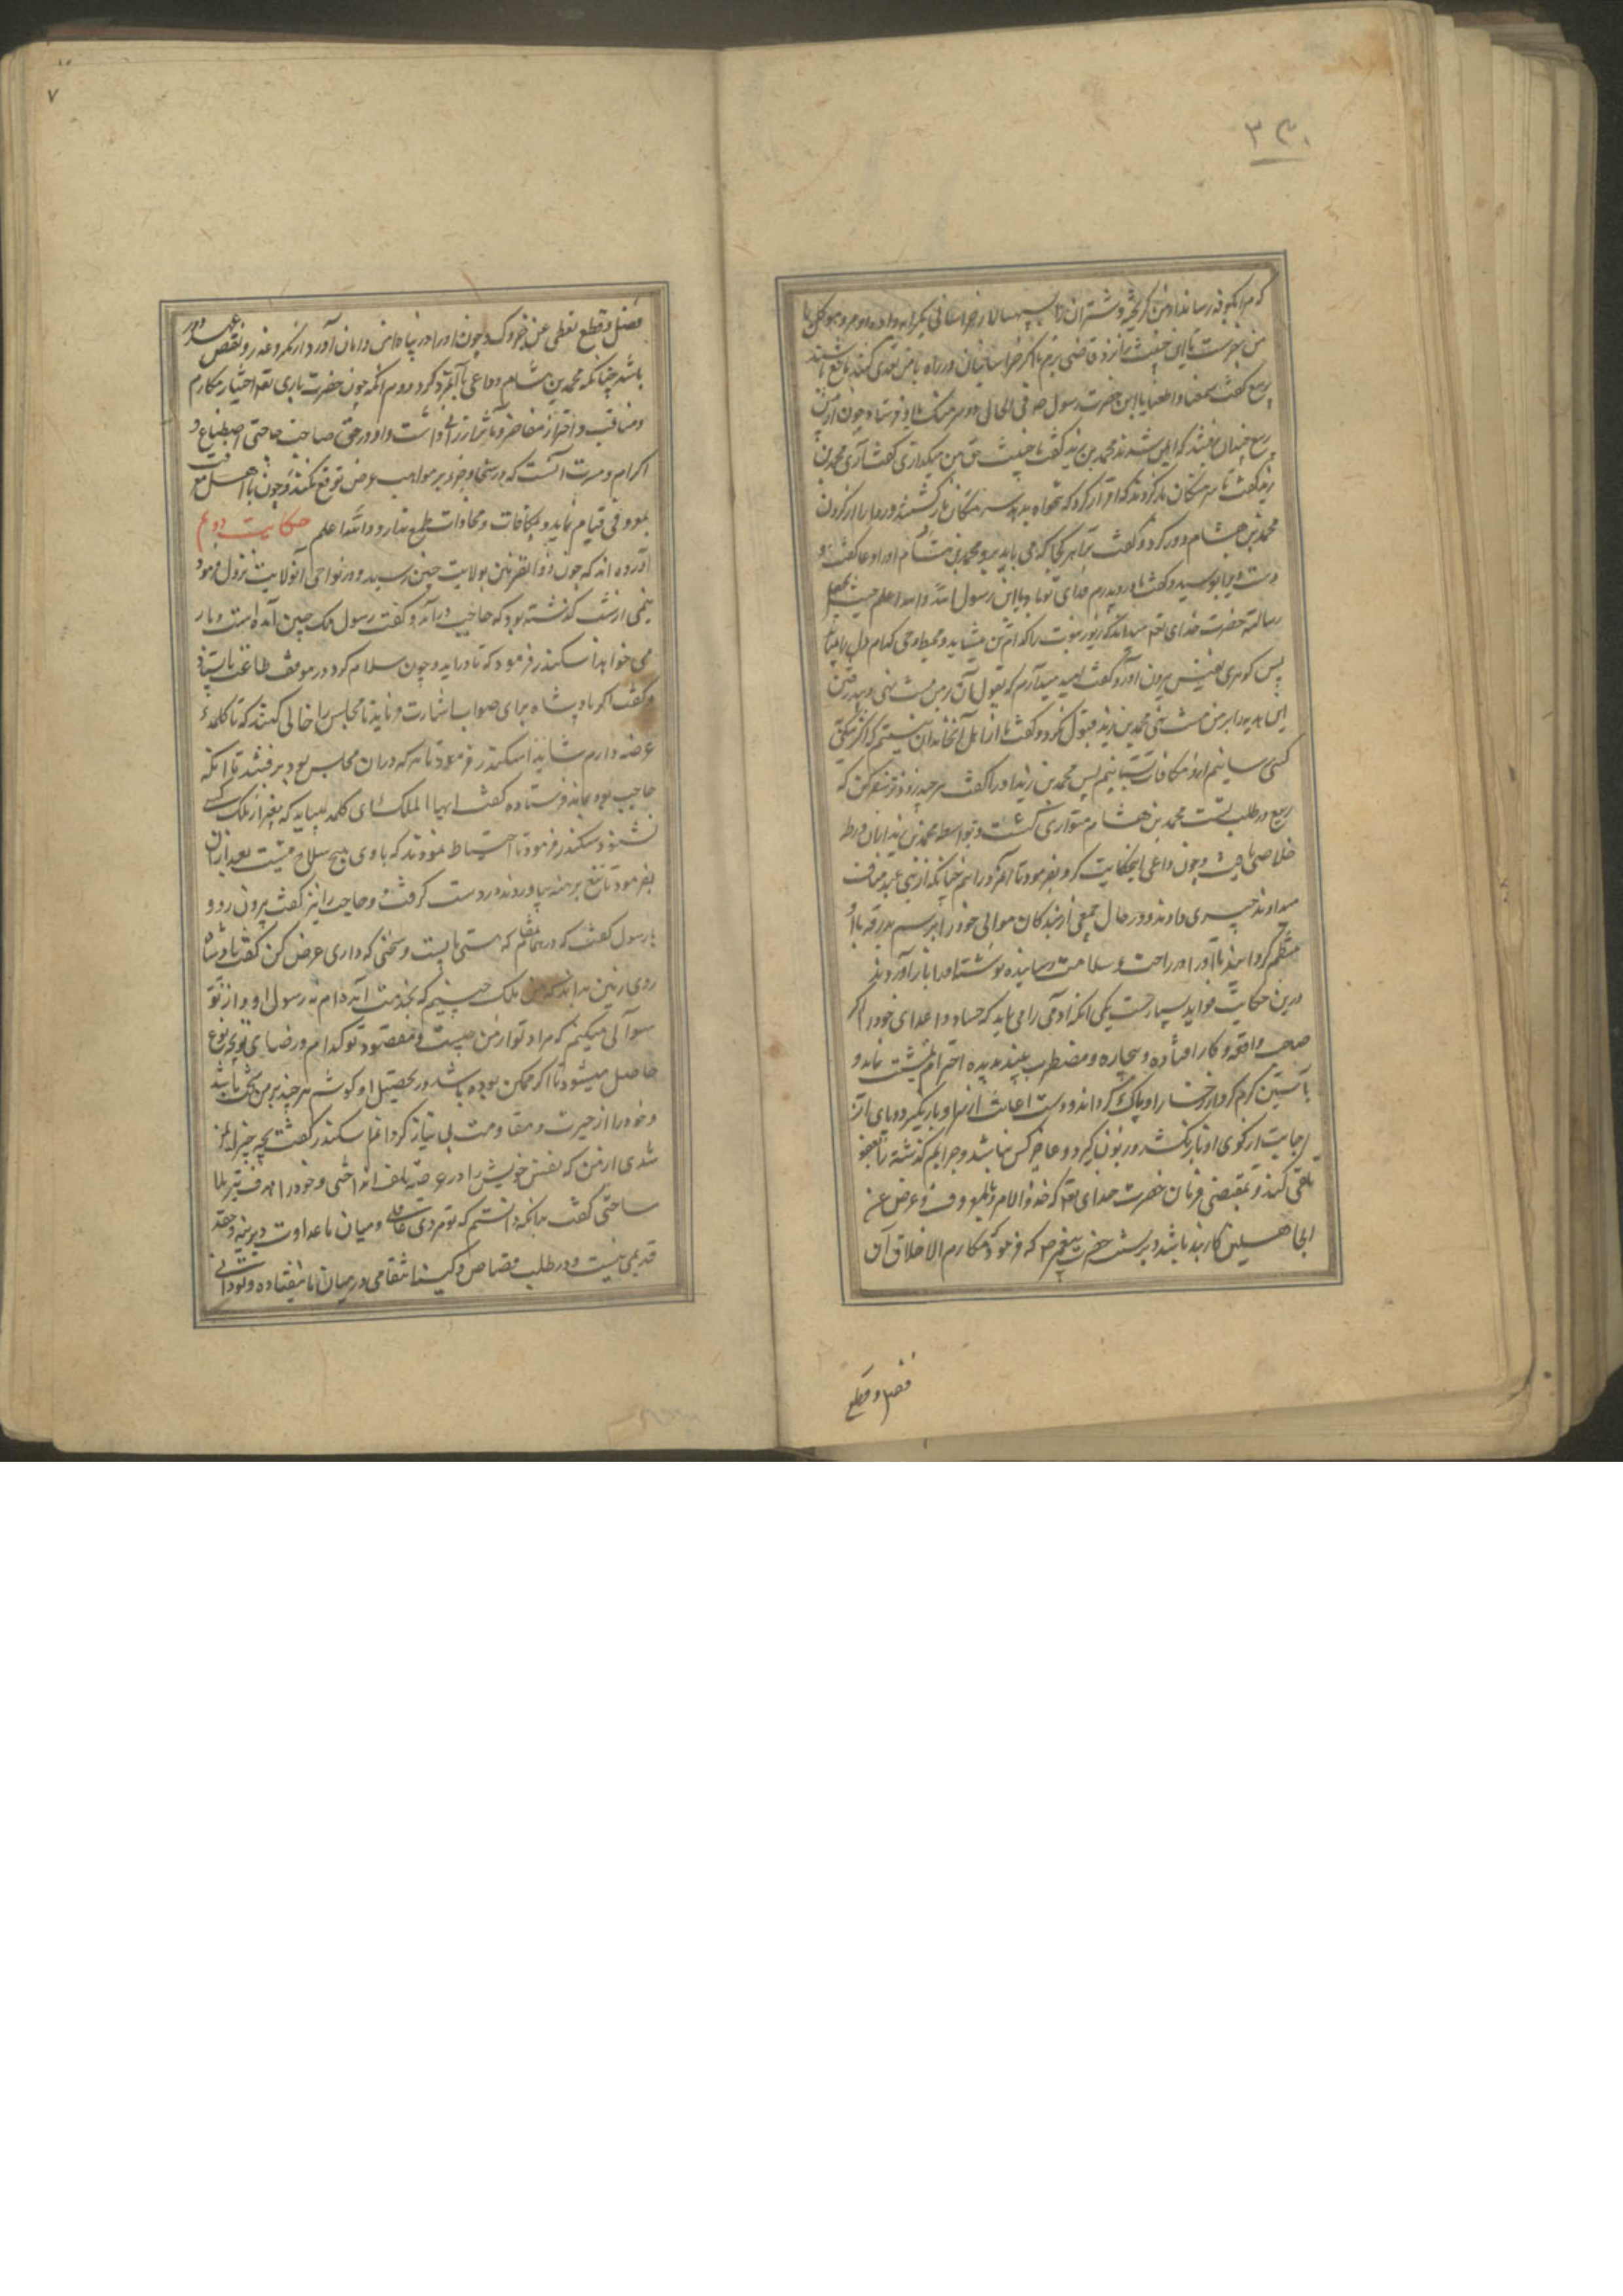 ۳۳۰
که مرا بکوفه رساند از من گریخته و شتران را سپهسالار خراسانی
من بفرست تا این خبیث را نزد قاضی برم تا اگر خراسانیان در راه با من تعدی کنند مانع باشند
ربیع گفت سمعنا و اطعنا یا ابن حضرت رسول ص و فی الحال دو سرهنگ با او فرستاد و چون از پیش
ربیع چندان برفتند که ایمن شدند محمد بن زید گفت یا خبیث حق من میگذاری گفت آری محمد بن
زید گفت تا سرهنگان باز گردند که اقرار کرد که تنخواه بدهد سرهنگان باز گشتند و ردا را از گردن
محمد بن هشام دور کرد و گفت ترا هر کجا که می باید برو محمد بن هشام او را دعا گفت و
دست ویرا بوسید و گفت مادر و پدرم فدای تو باد یا ابن رسول الله و الله اعلم حیث یجعل
رسالته حضرت خدای تعه میداند که زیور نبوت را کدام تن میشاید و محیط وحی کدام دل را
پس گوهری نفیس بیرون آورد و گفت امید میدارم که بقبول آن بر من منت نهی و بپذیرفتن
این هدیه را بر من منت نهی محمد بن زید قبول نکرد و گفت ما از اهل آنخاندان نیستیم که اگر نیکی
کسی رسانیم از او مکافات بستانیم پس محمد بن زید او را گفت هر چند زودتر سفر کن که
ربیع در طلب تست محمد بن هشام متواری گشت و بواسطه محمد بن زید از آن ورطه
خلاصی یافت و چون داعی اینحکایت کرد بفرمود تا آنمرد را هم چنانکه از بنی عبد مناف
میدادند چیزی دادند و در حال جمعی از بندگان موالی خود را برسم بدرقه با او
منظم گردانید تا او را در راحت و سلامت رسانیده نوشته او را باز آوردند
درین حکایت فواید بسیارست یکی آنکه آدمی را می باید که حساد و اعدای خود را اگر
صاحب واقعه و کار افتاده و بیچاره و مضطرب بیند بدیده احترام
بآستین کرم گرد از رخسار او پاک گرداند و دست اعانت از سر او باز نگیرد و پای از
اجابت از کوی او باز نکشد و زبون گیرد و عاجز کش نباشد و جرایم گذشته را بعفو
تلقی کند و بمقتضی فرمان حضرت خدای تعه که خذ العفو و امر بالمعروف و اعرض عن
الجاهلین کاربند باشد و بر سنت حضرت پیغمبر ص که فرموده مکارم الاخلاق ان
فضل و قطع
۷
فضل و قطع تعطی عن خروک و چون او را در پناه امن و امان آورد از مکر و غدر و نقض عهد دور
باشد چنانکه محمد بن هشام و داعی با آنمرد کرد دوم آنکه چون حضرت باری تعه اختیار مکارم
و مناقب و احراز مفاخر و مآثر ارزانی داشت و او در حق صاحب حاجتی اصطناع و
اکرام و مبرت آنست که در سخا و جود بر مواهب عوض توقع نکند و چون با اهل معرفت
بمروفی قیام نماید بمکافات و مجازات طمع ندارد و الله اعلم حکایت دوم
آورده اند که چون ذو القرنین بولایت چین رسید و در نواحی آنولایت نزول فرمود
نیمی از شب گذشته بود که حاجب درآمد و گفت رسول ملک چین آمده است و بار
می خواهد اسکندر فرمود که تا درآید و چون سلام کرد در موقف طاعت بایستاد
و گفت اگر پادشاه برای صواب اشارت فرماید تا مجلس را خالی کنند که تا کلمه
عرضه دارم شاید اسکندر فرمود تا هر که در آن مجلس بود برفتند تا آنکه
حاجب بود بماند فرستاده گفت ایها الملک این کلمه نمیباید که بغیر از ملک کسی
بشنود سکندر فرمود تا احتیاط نمودند که با وی هیچ سلاح نیست بعد از آن
بفرمود تا تیغ برهنه بیاوردند در دست گرفت و حاجب را نیز گفت بیرون رو و
با رسول گفت که در همانمقام که هستی بایست و سخنی که داری عرض کن گفت پادشاه
روی زمین بداند که من ملک چینم که بخدمت آمده ام نه رسول او و از تو
سوآلی میکنم که مراد تو از من چیست و مقصود تو کدام و رضای تو بچه نوع
حاصل میشود تا اگر ممکن بوده باشد در تحصیل او کوشم هر چند بر من سخت باشد
و خود را از حیرت و مقاومت بی نیاز گردانم اسکندر گفت بچه چیز ایمن
شدی از من که نفس خویش را در عرضه تلف انداختی و خود را هدف تیر بلا
ساختی گفت بدانکه دانستم که تو مردی عاقلی و میان ما عداوت دیرینه و حقد
قدیمی نیست و در طلب قصاص و کین انتقامی در میان ما نیفتاده و تو دانی